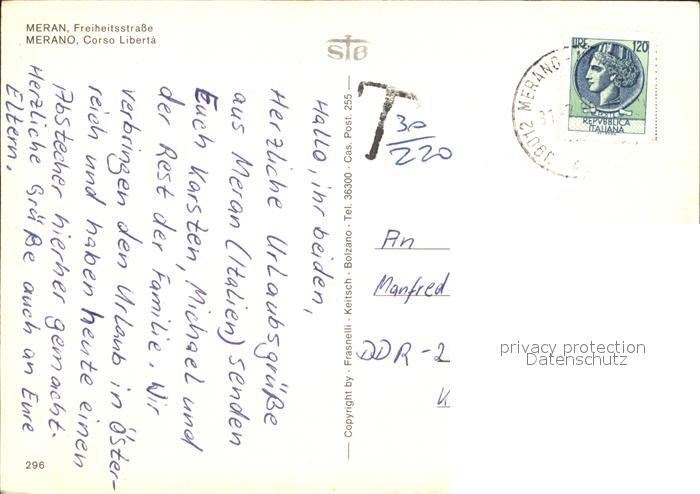 MERAN, Freiheitsstraße
MERANO, Corso Libertà
STB
Hallo, ihr beiden,
Herzliche Urlaubsgrüße
aus Meran (Italien) senden
Euch Karsten, Michael und
der Rest der Familie. Wir
verbringen den Urlaub in Öster-
reich und haben heute einen
Abstecher hierher gemacht.
Herzliche Grüße auch an Eure
Eltern.
296
Copyright by - Frasnelli - Keitsch - Bolzano - Tel. 36300 - Cas. Post. 255
T
30/220
39012 MERANO
LIRE 120
POSTE
REPVBBLICA
ITALIANA
An
Manfred
DDR-2
privacy protection
Datenschutz